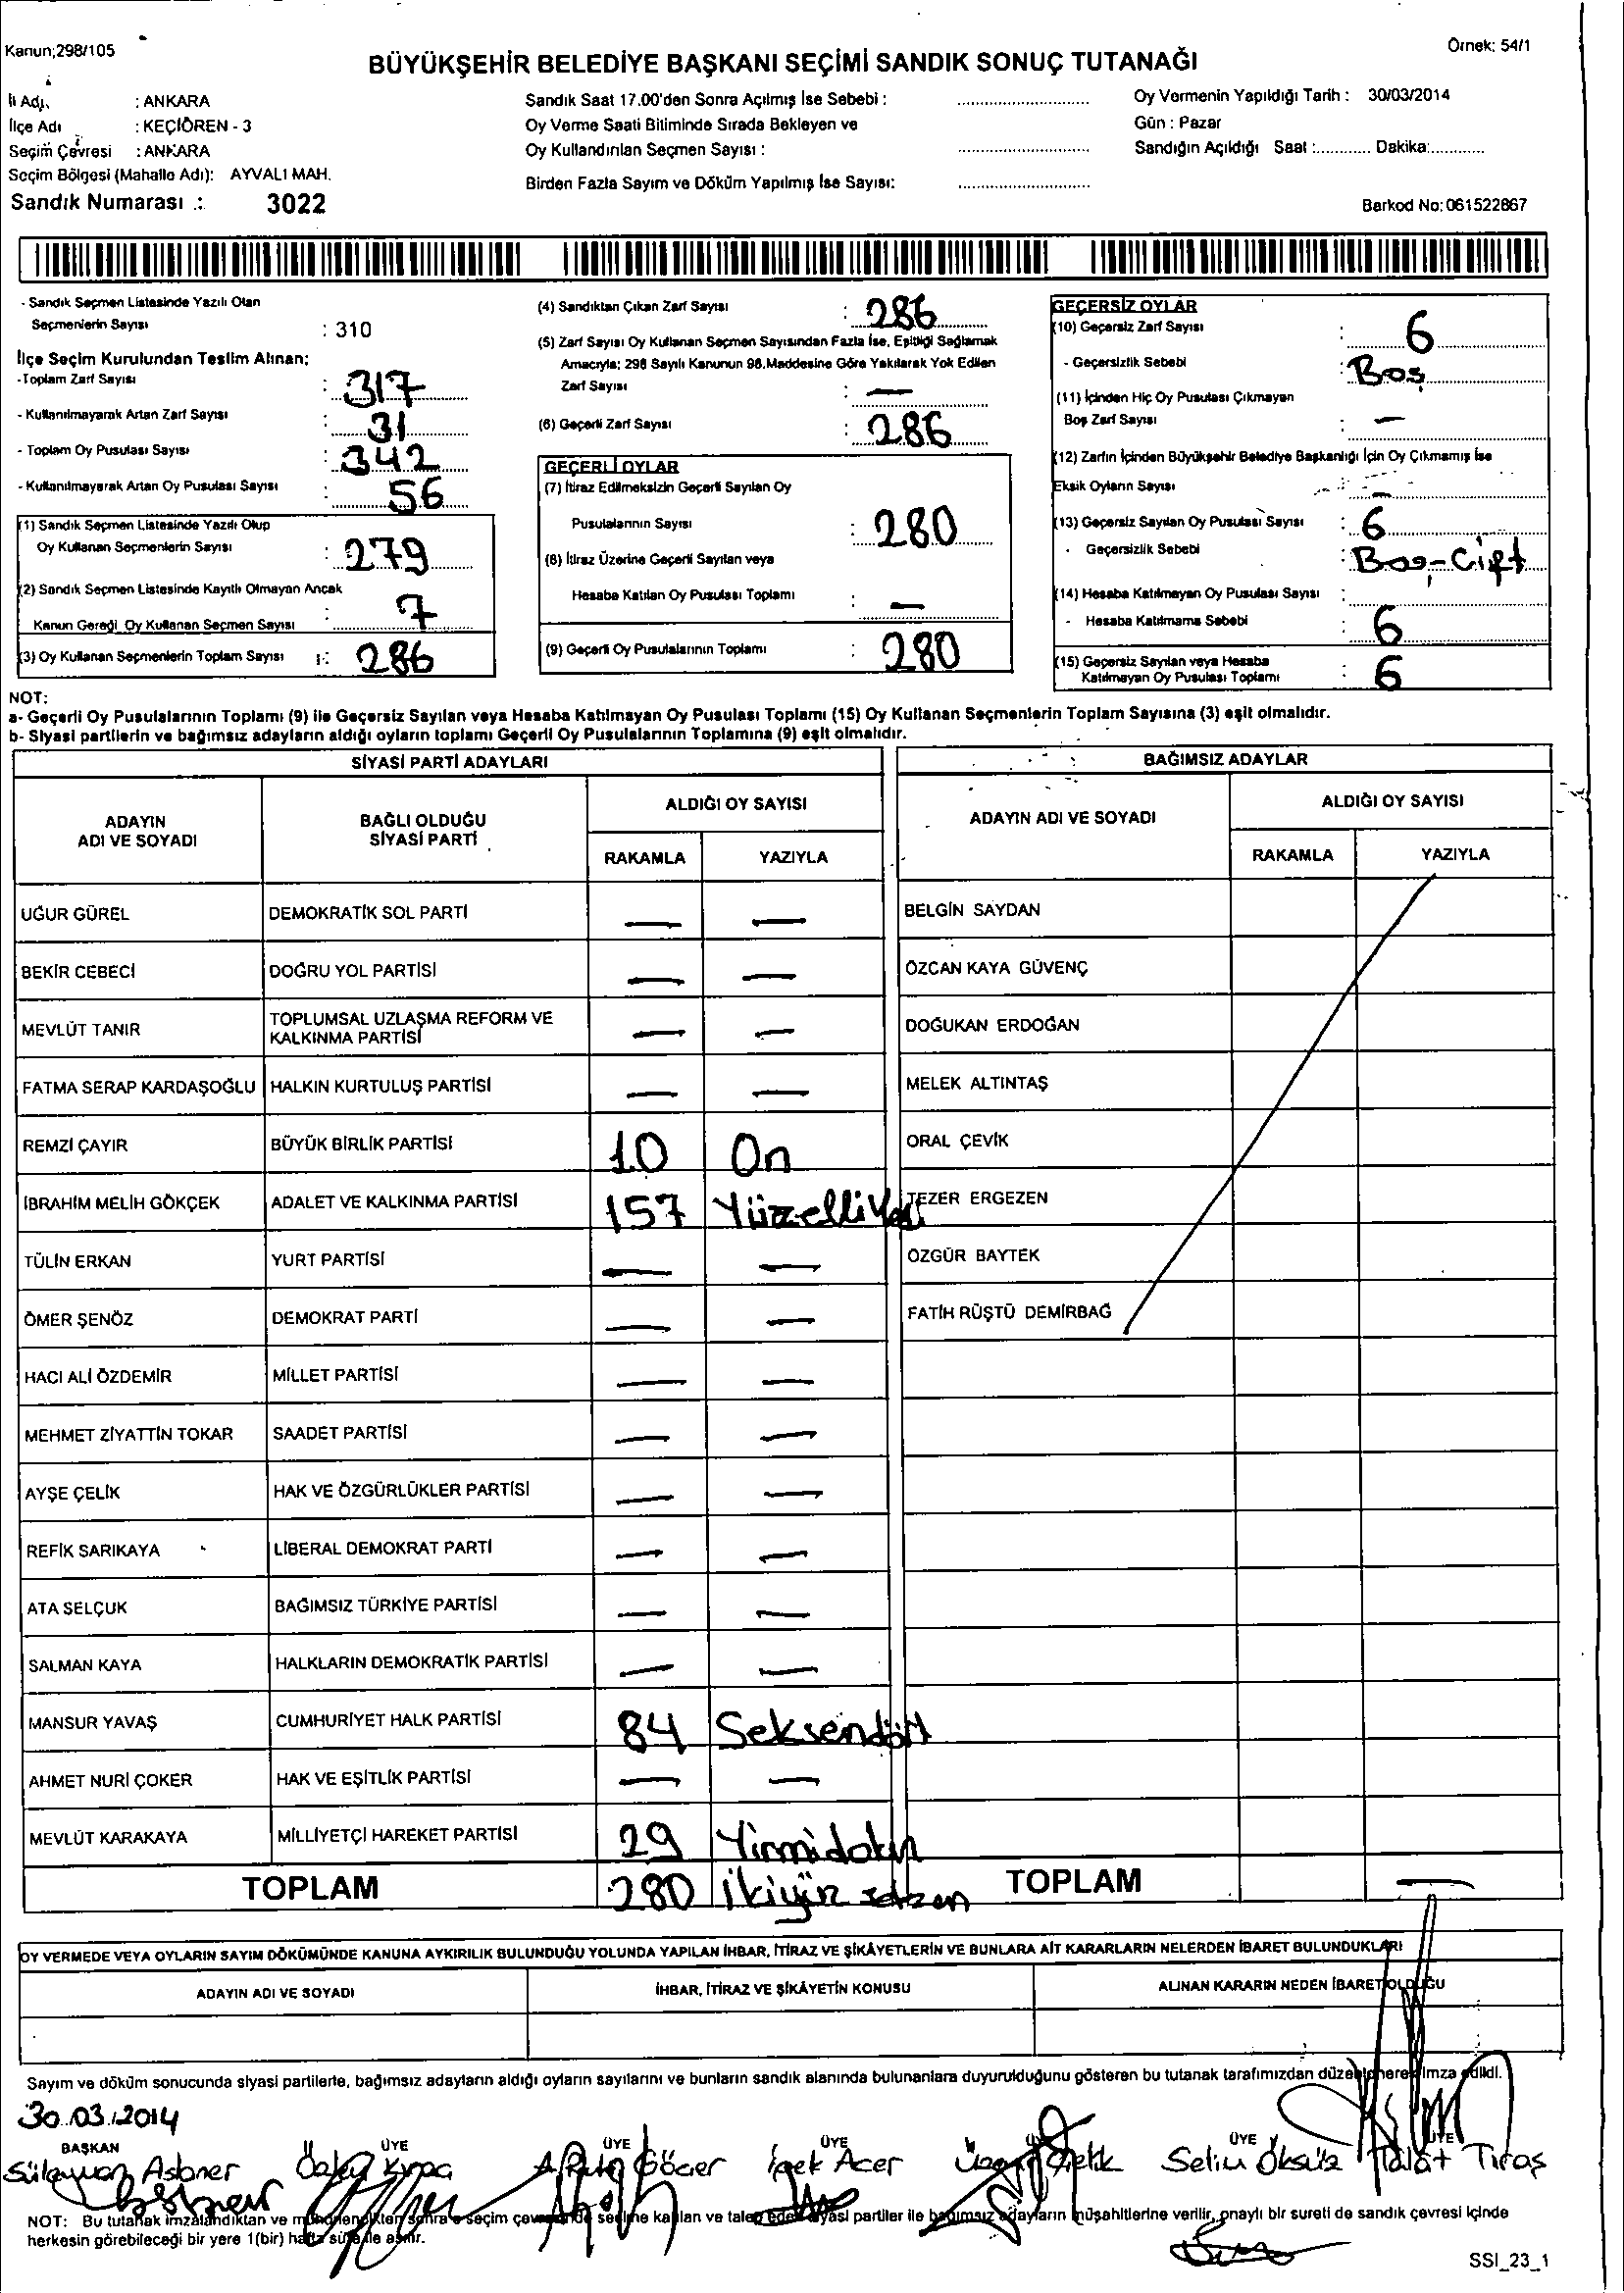 Kanun;298/105
Örnek: 54/1
BÜYÜKŞEHİR BELEDİYE BAŞKANI SEÇİMİ SANDIK SONUÇ TUTANAĞI
İl Adı : ANKARA
İlçe Adı : KEÇİÖREN - 3
Seçim Çevresi : ANKARA
Seçim Bölgesi (Mahalle Adı): AYVALI MAH.
Sandık Numarası : 3022
Sandık Saat 17.00'den Sonra Açılmış İse Sebebi :
Oy Verme Saati Bitiminde Sırada Bekleyen ve
Oy Kullandırılan Seçmen Sayısı :
Birden Fazla Sayım ve Döküm Yapılmış İse Sayısı:
Oy Vermenin Yapıldığı Tarih : 30/03/2014
Gün : Pazar
Sandığın Açıldığı Saat :............ Dakika:............
Barkod No: 061522867
- Sandık Seçmen Listesinde Yazılı Olan
Seçmenlerin Sayısı : 310
İlçe Seçim Kurulundan Teslim Alınan:
-Toplam Zarf Sayısı : 317
- Kullanılmayarak Artan Zarf Sayısı : 31
- Toplam Oy Pusulası Sayısı : 342
- Kullanılmayarak Artan Oy Pusulası Sayısı : 56
(1) Sandık Seçmen Listesinde Yazılı Olup
Oy Kullanan Seçmenlerin Sayısı : 279
(2) Sandık Seçmen Listesinde Kayıtlı Olmayan Ancak
Kanun Gereği Oy Kullanan Seçmen Sayısı : 7
(3) Oy Kullanan Seçmenlerin Toplam Sayısı : 286
(4) Sandıktan Çıkan Zarf Sayısı : 286
(5) Zarf Sayısı Oy Kullanan Seçmen Sayısından Fazla İse, Eşitliği Sağlamak
Amacıyla; 298 Sayılı Kanunun 98.Maddesine Göre Yakılarak Yok Edilen
Zarf Sayısı : —
(6) Geçerli Zarf Sayısı : 286
GEÇERLİ OYLAR
(7) İtiraz Edilmeksizin Geçerli Sayılan Oy
Pusulalarının Sayısı : 280
(8) İtiraz Üzerine Geçerli Sayılan veya
Hesaba Katılan Oy Pusulası Toplamı : —
(9) Geçerli Oy Pusulalarının Toplamı : 280
GEÇERSİZ OYLAR
(10) Geçersiz Zarf Sayısı : 6
- Geçersizlik Sebebi : Boş
(11) İçinden Hiç Oy Pusulası Çıkmayan
Boş Zarf Sayısı : —
(12) Zarfın İçinden Büyükşehir Belediye Başkanlığı İçin Oy Çıkmamış İse
Eksik Oyların Sayısı : —
(13) Geçersiz Sayılan Oy Pusulası Sayısı : 6
- Geçersizlik Sebebi : Boş-Çift
(14) Hesaba Katılmayan Oy Pusulası Sayısı :
- Hesaba Katılmama Sebebi : 6
(15) Geçersiz Sayılan veya Hesaba
Katılmayan Oy Pusulası Toplamı : 6
NOT:
a- Geçerli Oy Pusulalarının Toplamı (9) ile Geçersiz Sayılan veya Hesaba Katılmayan Oy Pusulası Toplamı (15) Oy Kullanan Seçmenlerin Toplam Sayısına (3) eşit olmalıdır.
b- Siyasi partilerin ve bağımsız adayların aldığı oyların toplamı Geçerli Oy Pusulalarının Toplamına (9) eşit olmalıdır.
SİYASİ PARTİ ADAYLARI
ADAYIN ADI VE SOYADI BAĞLI OLDUĞU SİYASİ PARTİ ALDIĞI OY SAYISI
RAKAMLA YAZIYLA
UĞUR GÜREL DEMOKRATİK SOL PARTİ — —
BEKİR CEBECİ DOĞRU YOL PARTİSİ — —
MEVLÜT TANIR TOPLUMSAL UZLAŞMA REFORM VE KALKINMA PARTİSİ — —
FATMA SERAP KARDAŞOĞLU HALKIN KURTULUŞ PARTİSİ — —
REMZİ ÇAYIR BÜYÜK BİRLİK PARTİSİ 10 On
İBRAHİM MELİH GÖKÇEK ADALET VE KALKINMA PARTİSİ 157 Yüzelliyedi
TÜLİN ERKAN YURT PARTİSİ — —
ÖMER ŞENÖZ DEMOKRAT PARTİ — —
HACI ALİ ÖZDEMİR MİLLET PARTİSİ — —
MEHMET ZİYATTİN TOKAR SAADET PARTİSİ — —
AYŞE ÇELİK HAK VE ÖZGÜRLÜKLER PARTİSİ — —
REFİK SARIKAYA LİBERAL DEMOKRAT PARTİ — —
ATA SELÇUK BAĞIMSIZ TÜRKİYE PARTİSİ — —
SALMAN KAYA HALKLARIN DEMOKRATİK PARTİSİ — —
MANSUR YAVAŞ CUMHURİYET HALK PARTİSİ 84 Seksendört
AHMET NURİ ÇOKER HAK VE EŞİTLİK PARTİSİ — —
MEVLÜT KARAKAYA MİLLİYETÇİ HAREKET PARTİSİ 29 Yirmidokuz
TOPLAM 280 İkiyüz seksen
BAĞIMSIZ ADAYLAR
ADAYIN ADI VE SOYADI ALDIĞI OY SAYISI
RAKAMLA YAZIYLA
BELGİN SAYDAN
ÖZCAN KAYA GÜVENÇ
DOĞUKAN ERDOĞAN
MELEK ALTINTAŞ
ORAL ÇEVİK
TEZER ERGEZEN
ÖZGÜR BAYTEK
FATİH RÜŞTÜ DEMİRBAĞ
TOPLAM —
OY VERMEDE VEYA OYLARIN SAYIM DÖKÜMÜNDE KANUNA AYKIRILIK BULUNDUĞU YOLUNDA YAPILAN İHBAR, İTİRAZ VE ŞİKÂYETLERİN VE BUNLARA AİT KARARLARIN NELERDEN İBARET BULUNDUKLARI
ADAYIN ADI VE SOYADI İHBAR, İTİRAZ VE ŞİKÂYETİN KONUSU ALINAN KARARIN NEDEN İBARET OLDUĞU
Sayım ve döküm sonucunda siyasi partilerle, bağımsız adayların aldığı oyların sayılarını ve bunların sandık alanında bulunanlara duyurulduğunu gösteren bu tutanak tarafımızdan düzenlenerek imza edildi.
30.03.2014
BAŞKAN ÜYE ÜYE ÜYE ÜYE ÜYE ÜYE
Göçer İpek Acer Çelik Selin Öksüz Talat Tıraş
NOT: Bu tutanak imzalandıktan ve mühürlendikten sonra o seçim çevresinde seçime katılan ve talep eden siyasi partiler ile bağımsız adayların müşahitlerine verilir, onaylı bir sureti de sandık çevresi içinde
herkesin görebileceği bir yere 1(bir) hafta süreyle asılır.
SSI_23_1